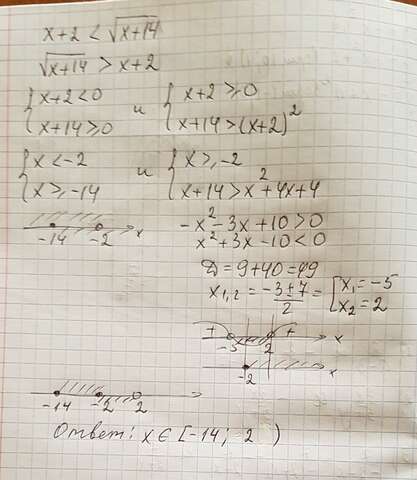 x+2 < √(x+14)
√(x+14) > x+2
{ x+2<0 и { x+2≥0
x+14≥0 x+14>(x+2)²
{ x<-2 и { x≥-2
x≥-14 x+14>x²+4x+4
-14 -2 x
-x²-3x+10>0
x²+3x-10<0
D=9+40=49
x₁,₂ = (-3±7)/2 = [ x₁=-5
x₂=2
+ +
-5 2 x
-2 x
-14 -2 2
Ответ: x∈[-14; -2 )